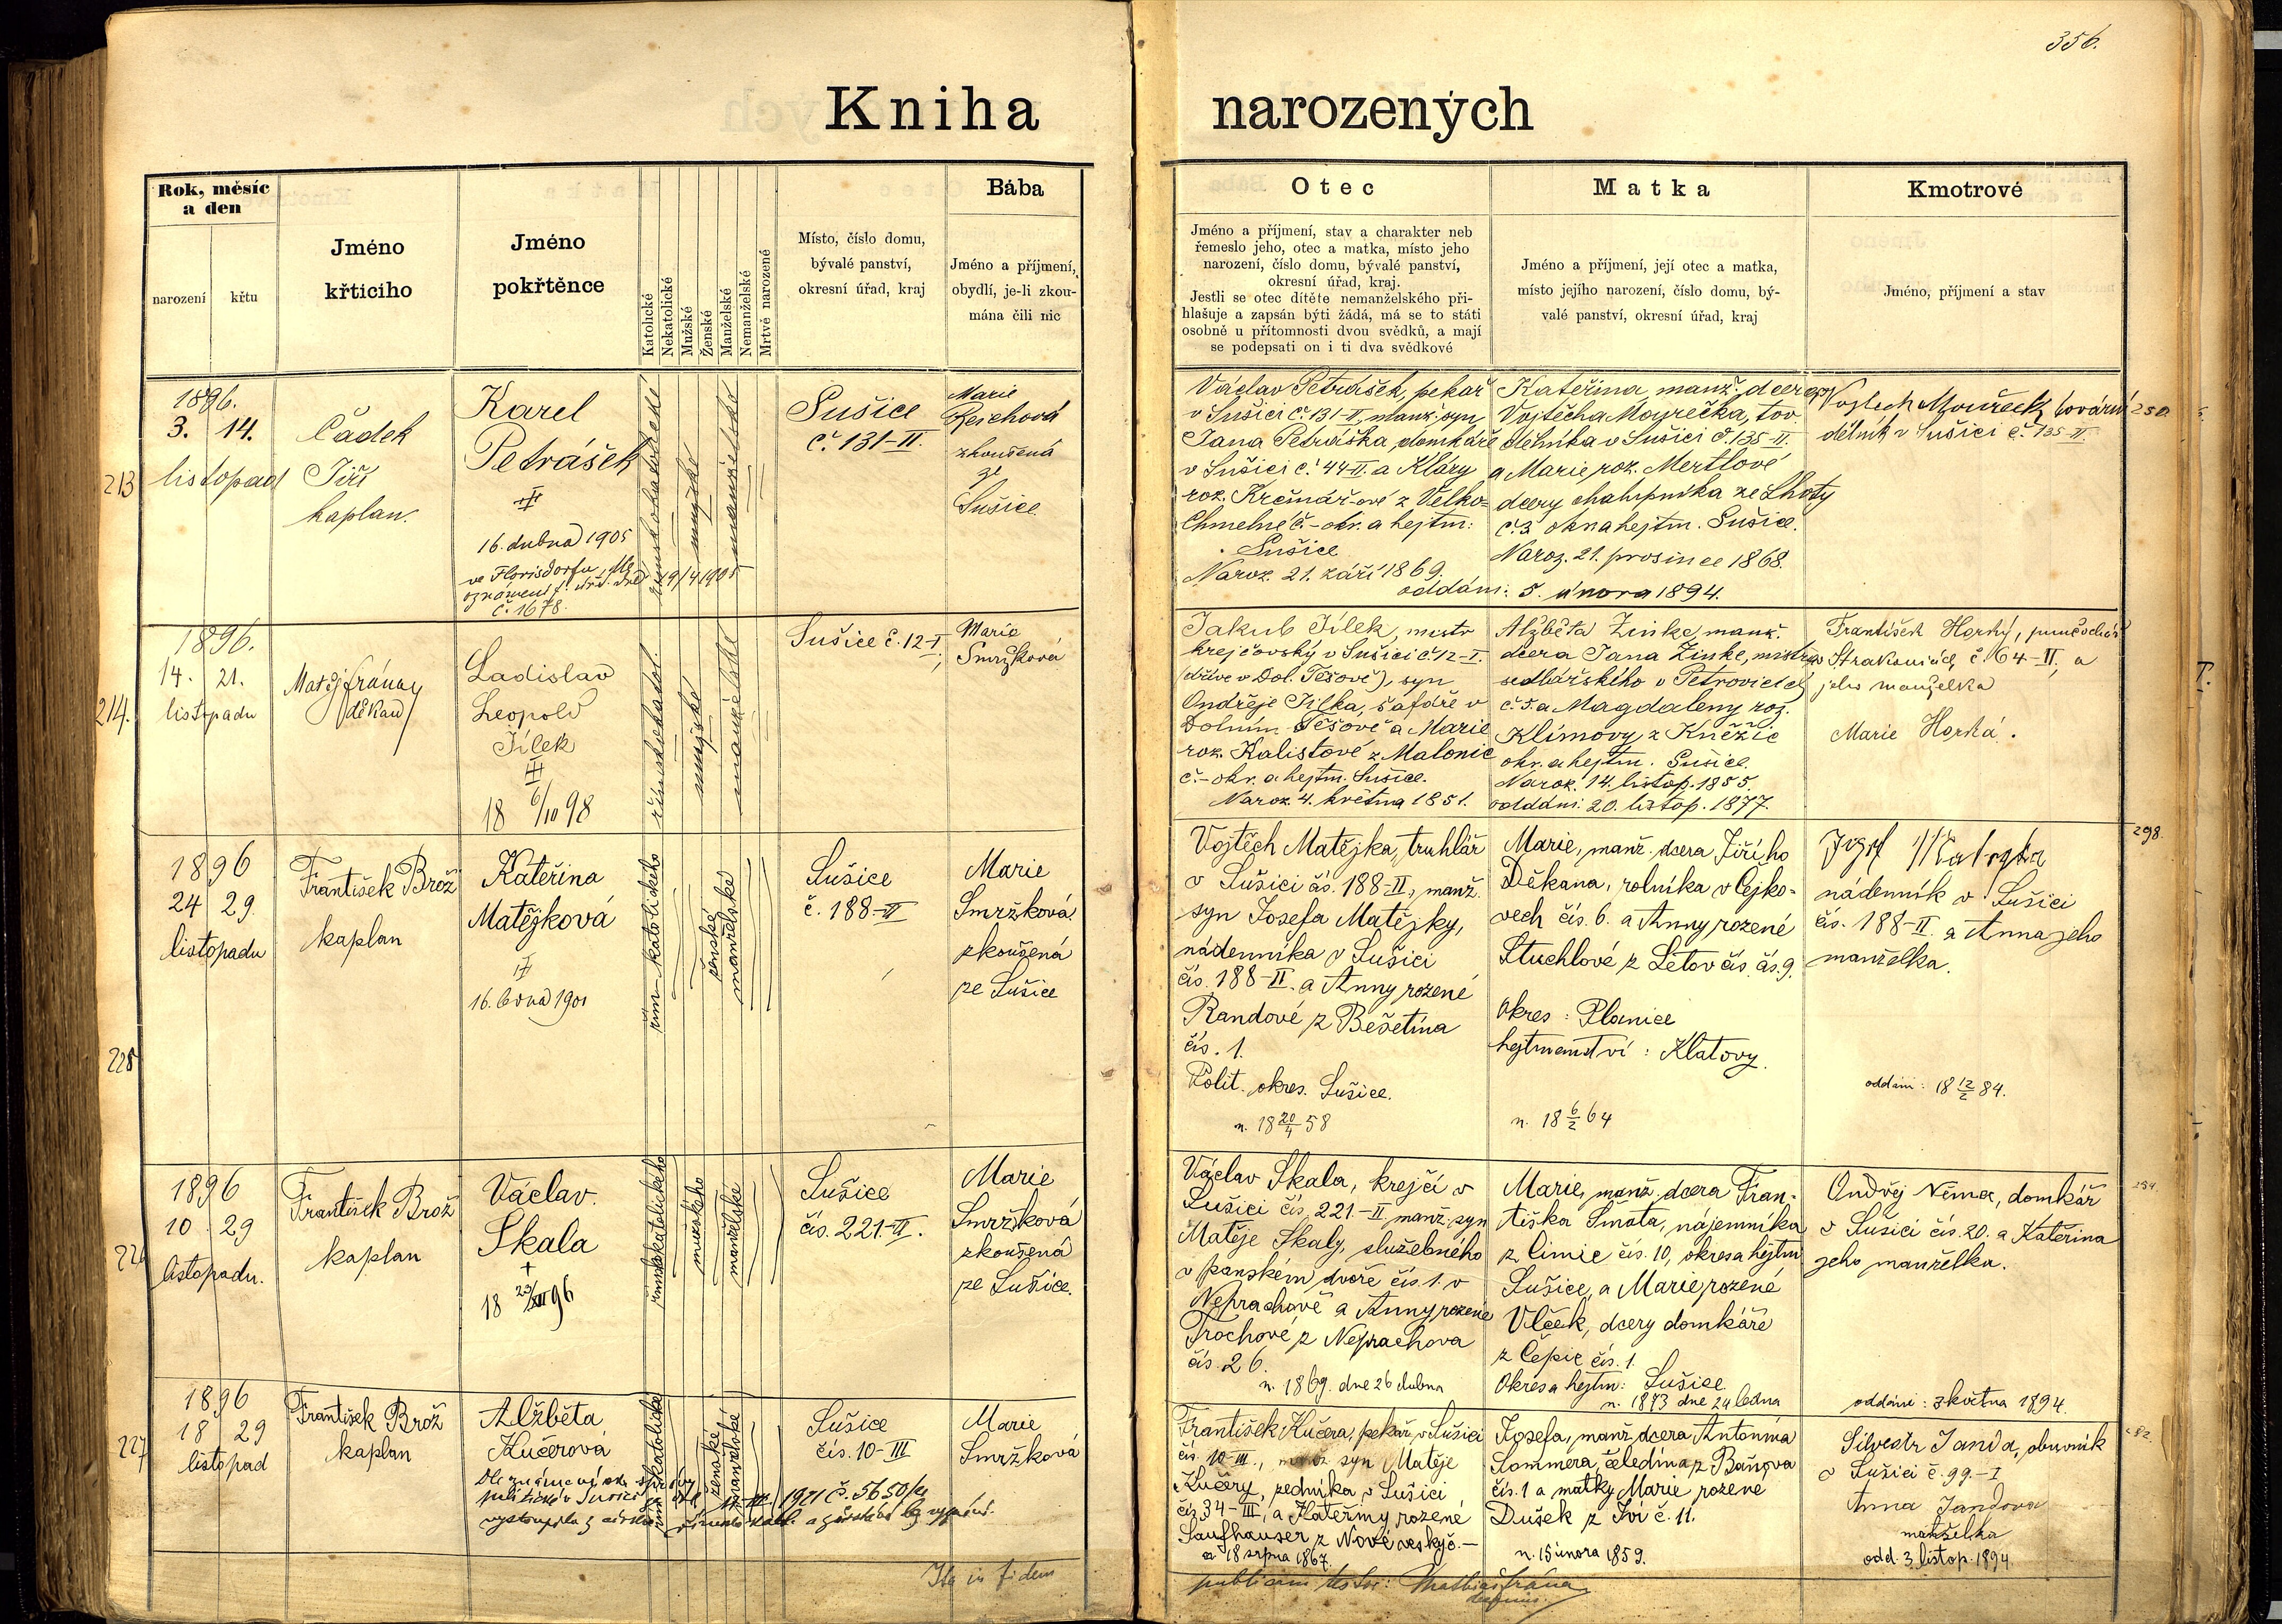 356.
Kniha narozených
Rok, měsíc
a den
narození
křtu
Jméno
křticího
Jméno
pokřtěnce
Katolické
Nekatolické
Mužské
Ženské
Manželské
Nemanželské
Mrtvě narozené
Místo, číslo domu,
bývalé panství,
okresní úřad, kraj
Bába
Jméno a příjmení,
obydlí, je-li zkou-
mána čili nic
Otec
Jméno a příjmení, stav a charakter neb
řemeslo jeho, otec a matka, místo jeho
narození, číslo domu, bývalé panství,
okresní úřad, kraj.
Jestli se otec dítěte nemanželského při-
hlašuje a zapsán býti žádá, má se to státi
osobně u přítomnosti dvou svědků, a mají
se podepsati on i ti dva svědkové
Matka
Jméno a příjmení, její otec a matka,
místo jejího narození, číslo domu, bý-
valé panství, okresní úřad, kraj
Kmotrové
Jméno, příjmení a stav
213
1896.
3. 14.
listopad
Čádek
Jiří
kaplan.
Karel
Petrášek
16. dubna 1905
ve Florisdorfu
č. 1678.
19/4 1905
římskokatolické
mužské
manželské
Sušice
č. 131-II.
Marie
Reichová
zkoušená
ze
Sušice
Václav Petrášek, pekař
v Sušici č. 131-II, manž. syn
Jana Petráška, domkáře
v Sušici č. 44-II. a Kláry
roz. Krčmářové z Velko-
Chmelné č. - okr. a hejtm:
Sušice
Naroz. 21. září 1869.
Kateřina, manž. dcera
Vojtěcha Mouřečka, tov.
dělníka v Sušici č. 135-II.
a Marie roz. Mertlové
dcery chalupníka ze Lhoty
č. 3 okr. a hejtm. Sušice.
Naroz. 21. prosince 1868.
oddáni: 5. února 1894.
Vojtěch Mouřeček, tovární
dělník v Sušici č. 135-II.
250.
214.
1896.
14. 21.
listopadu
Matěj Frána
děkan
Ladislav
Leopold
Jílek
18 6/10 98
římskokatol.
mužské
manželské
Sušice č. 12-I.
Marie
Smržková
Jakub Jílek, mistr
krejčovský v Sušici č. 12-I.
(dříve v Dol. Těšově), syn
Ondřeje Jílka, šafáře v
Dolním Těšově a Marie
roz. Kalistové z Malonic
č. - okr. a hejtm. Sušice.
Naroz. 4. května 1851.
Alžběta Zinke, manž.
dcera Jana Zinke, mistra
sedlářského v Petrovicích
č. 5. a Magdaleny roz.
Klímovy z Kněžic
okr. a hejtm. Sušice.
Naroz. 14. listop. 1855.
oddáni: 20. listop. 1877.
František Horký, punčochář
v Strakonicích č. 64-II, a
jeho manželka
Marie Horká.
225
1896
24 29.
listopadu
František Brož
kaplan
Kateřina
Matějková
16. ledna 1901
řím-katolického
ženské
manželské
Sušice
č. 188-II
Marie
Smržková
zkoušená
ze Sušice
Vojtěch Matějka, truhlář
v Sušici čís. 188-II, manž.
syn Josefa Matějky,
nádenníka v Sušici
čís. 188-II. a Anny rozené
Randové z Bešetína
čís. 1.
Polit. okres. Sušice.
n. 18 20/4 58
Marie, manž. dcera Jiřího
Děkana, rolníka v Cejko-
vech čís. 6. a Anny rozené
Stuchlové z Letov čís. čís. 9.
Okres: Planice
hejtmanství: Klatovy.
n. 18 6/2 64
Josef Matejka
nádenník v Sušici
čís. 188-II. a Anna jeho
manželka.
oddáni: 18 12/2 84.
298.
226
1896
10 29
listopadu.
František Brož
kaplan
Václav.
Skala
18 23/XII 96
římskokatolického
mužského
manželské
Sušice
čís. 221-II.
Marie
Smržková
zkoušená
ze Sušice.
Václav Skala, krejčí v
Sušici čís. 221.-II, manž. syn
Matěje Skaly, služebného
v panském dvoře čís. 1. v
Neprachově a Anny rozené
Trochové z Neprachova
čís. 26.
n. 1869. dne 26 dubna
Marie, manž. dcera Fran-
tiška Šmata, nájemníka
z Cimic čís. 10, okres a hejtm
Sušice, a Marie rozené
Vlček, dcery domkáře
z Čepic čís. 1.
Okres a hejtm: Sušice
n. 1873 dne 24 ledna
Ondřej Němec, domkář
v Sušici čís. 20. a Kateřina
jeho manželka.
oddáni: 3 května 1894.
227
1896
18 29
listopad
František Brož
kaplan
Alžběta
Kučerová
Dle oznámení okr. správy
politické v Sušici ze dne 1921 č. 5650
vystoupila z církve římsko-kat. a zůstává bez vyznání.
římskokatolické
ženské
manželské
Sušice
čís. 10-III
Marie
Smržková
František Kučera, pekař, v Sušici
čís. 10-III., manž. syn Matěje
Kučery, zedníka v Sušici
čís. 34-III, a Kateřiny rozené
Saufhauser z Nové vesky č. -
n. 18 srpna 1867.
Josefa, manž. dcera Antonína
Sommera, čeledína z Baňova
čís. 1 a matky Marie rozené
Dušek z Jví č. 11.
n. 15 února 1859.
Silvestr Janda, obuvník
v Sušici č. 99.-I
Anna Jandova
manželka
odd. 3. listop. 1894.
Ita in fidem
publicam testor: Mathias Frána